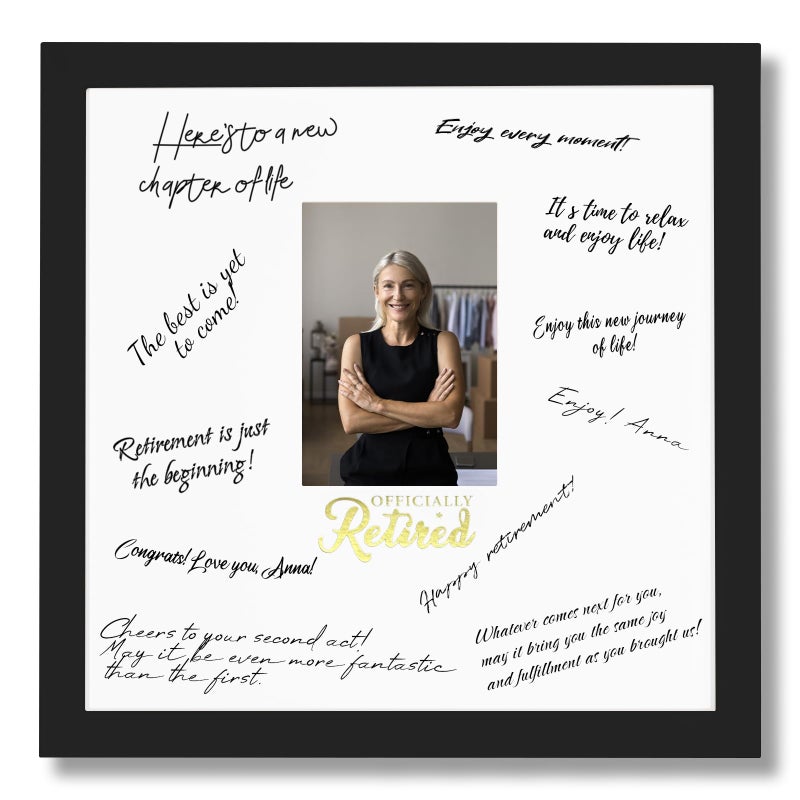 Here's to a new
chapter of life
Enjoy every moment!
It s time to relax
and enjoy life!
The best is yet
to come!
Enjoy this new journey
of life!
Enjoy! Anna
Retirement is just
the beginning!
OFFICIALLY
Retired
Happy retirement!
Congrats! Love you, Anna!
Cheers to your second act!
May it be even more fantastic
than the first.
Whatever comes next for you,
may it bring you the same joy
and fulfillment as you brought us!